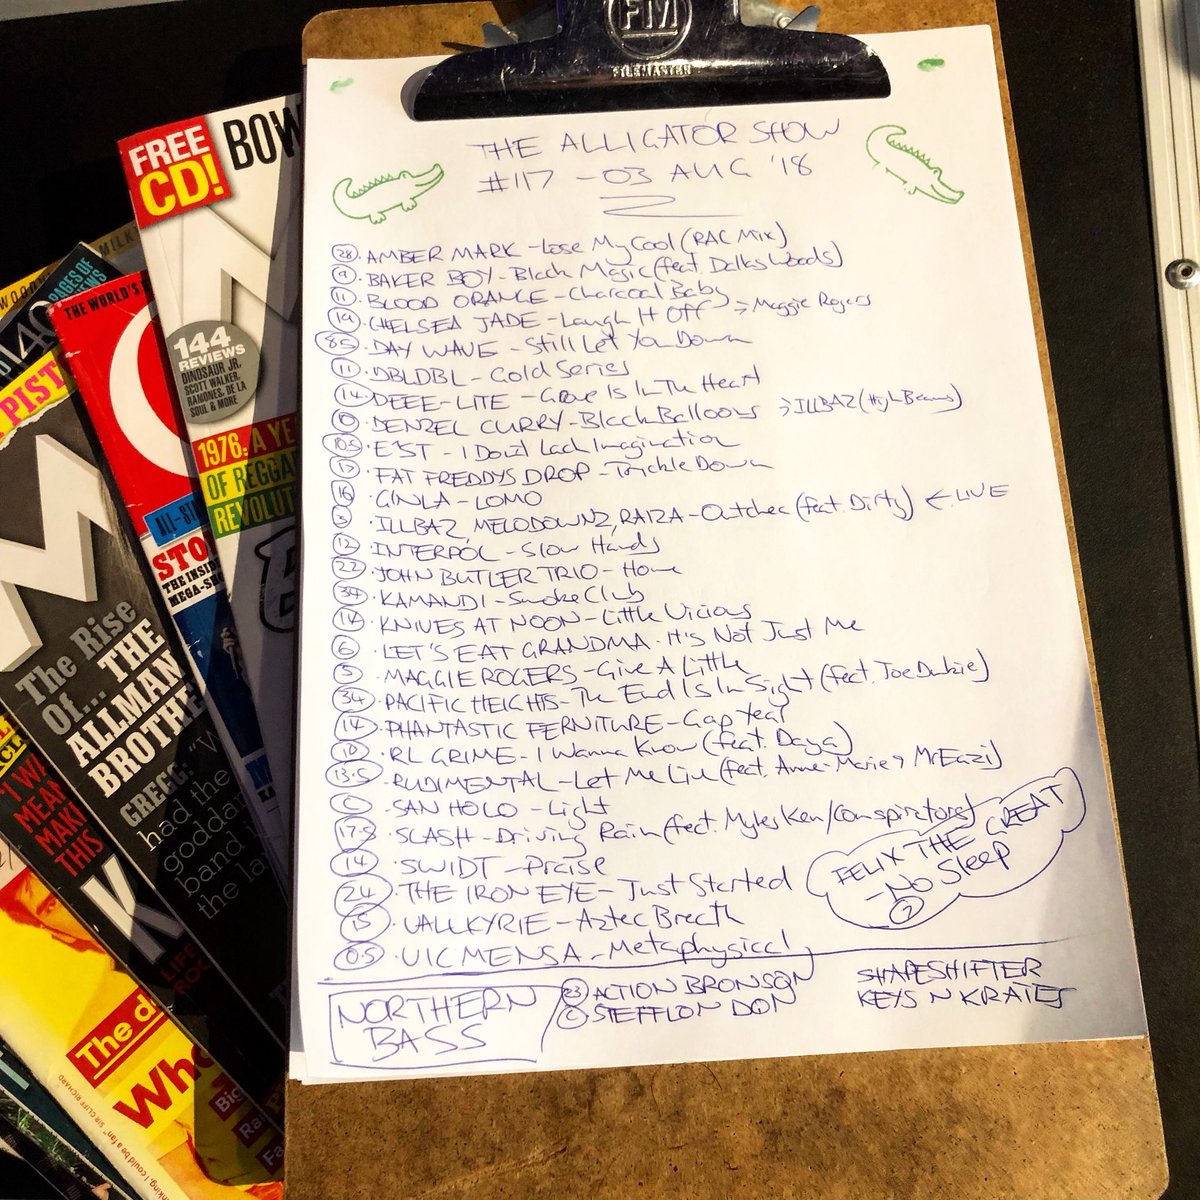 FM
FILEMASTER
THE ALLIGATOR SHOW
#117 - 03 AUG '18
28 · AMBER MARK - Lose My Cool (RAC Mix)
9 · BAKER BOY - Black Magic (feat. Dallas Woods)
11 · BLOOD ORANGE - Charcoal Baby
19 · CHELSEA JADE - Laugh It Off → Maggie Rogers
8.5 · DAY WAVE - Still Let You Down
11 · DBLDBL - Cold Series
14 · DEEE-LITE - Groove Is In The Heart
0 · DENZEL CURRY - Black Balloons → ILLBAZ (High Beams)
10.5 · E^ST - I Don't Lack Imagination
17 · FAT FREDDYS DROP - Trickle Down
16 · GINLA - LOMO
· ILLBAZ, MELODOWNZ, RAIZA - Outchea (feat. Dirty) ← LIVE
12 · INTERPOL - Slow Hands
22 · JOHN BUTLER TRIO - Home
34 · KAMANDI - Smoke Club
14 · KNIVES AT NOON - Little Vicious
6 · LET'S EAT GRANDMA - It's Not Just Me
5 · MAGGIE ROGERS - Give A Little
34 · PACIFIC HEIGHTS - The End Is In Sight (feat. Joe Dukie)
14 · PHANTASTIC FERNITURE - Gap Year
10 · RL GRIME - I Wanna Know (feat. Daya)
13.5 · RUDIMENTAL - Let Me Live (feat. Anne-Marie & Mr Eazi)
0 · SAN HOLO - Light
17.5 · SLASH - Driving Rain (feat. Myles Ken/Conspirators)
14 · SWIDT - Praise
24 · THE IRON EYE - Just Started
15 · VALLKYRIE - Aztec Breath
0.5 · VIC MENSA - Metaphysical
FELIX THE GREAT
- No Sleep
7
NORTHERN
BASS
23 ACTION BRONSON
0 STEFFLON DON
SHAPESHIFTER
KEYS N KRATES
FREE
CD!
BOW
144
REVIEWS
DINOSAUR JR,
SCOTT WALKER,
RAMONES, DE LA
SOUL & MORE
1976: A YE
OF REGGA
REVOLUT
THE WORLD'S
PAGES OF
MILK
WOOD
140
PIST
ALL-STA
STO
THE INSID
MEGA-SHO
The Rise
Of... THE
ALLMAN
BROTHE
GREGG:
"W
had the
goddam
band i
the la
"I WI
MEAN
MAKI
THIS
K
LIFE
RO
The d
Who
Big
Ra
Fa
I could be a fan."
SIR CLIFF RICHARD